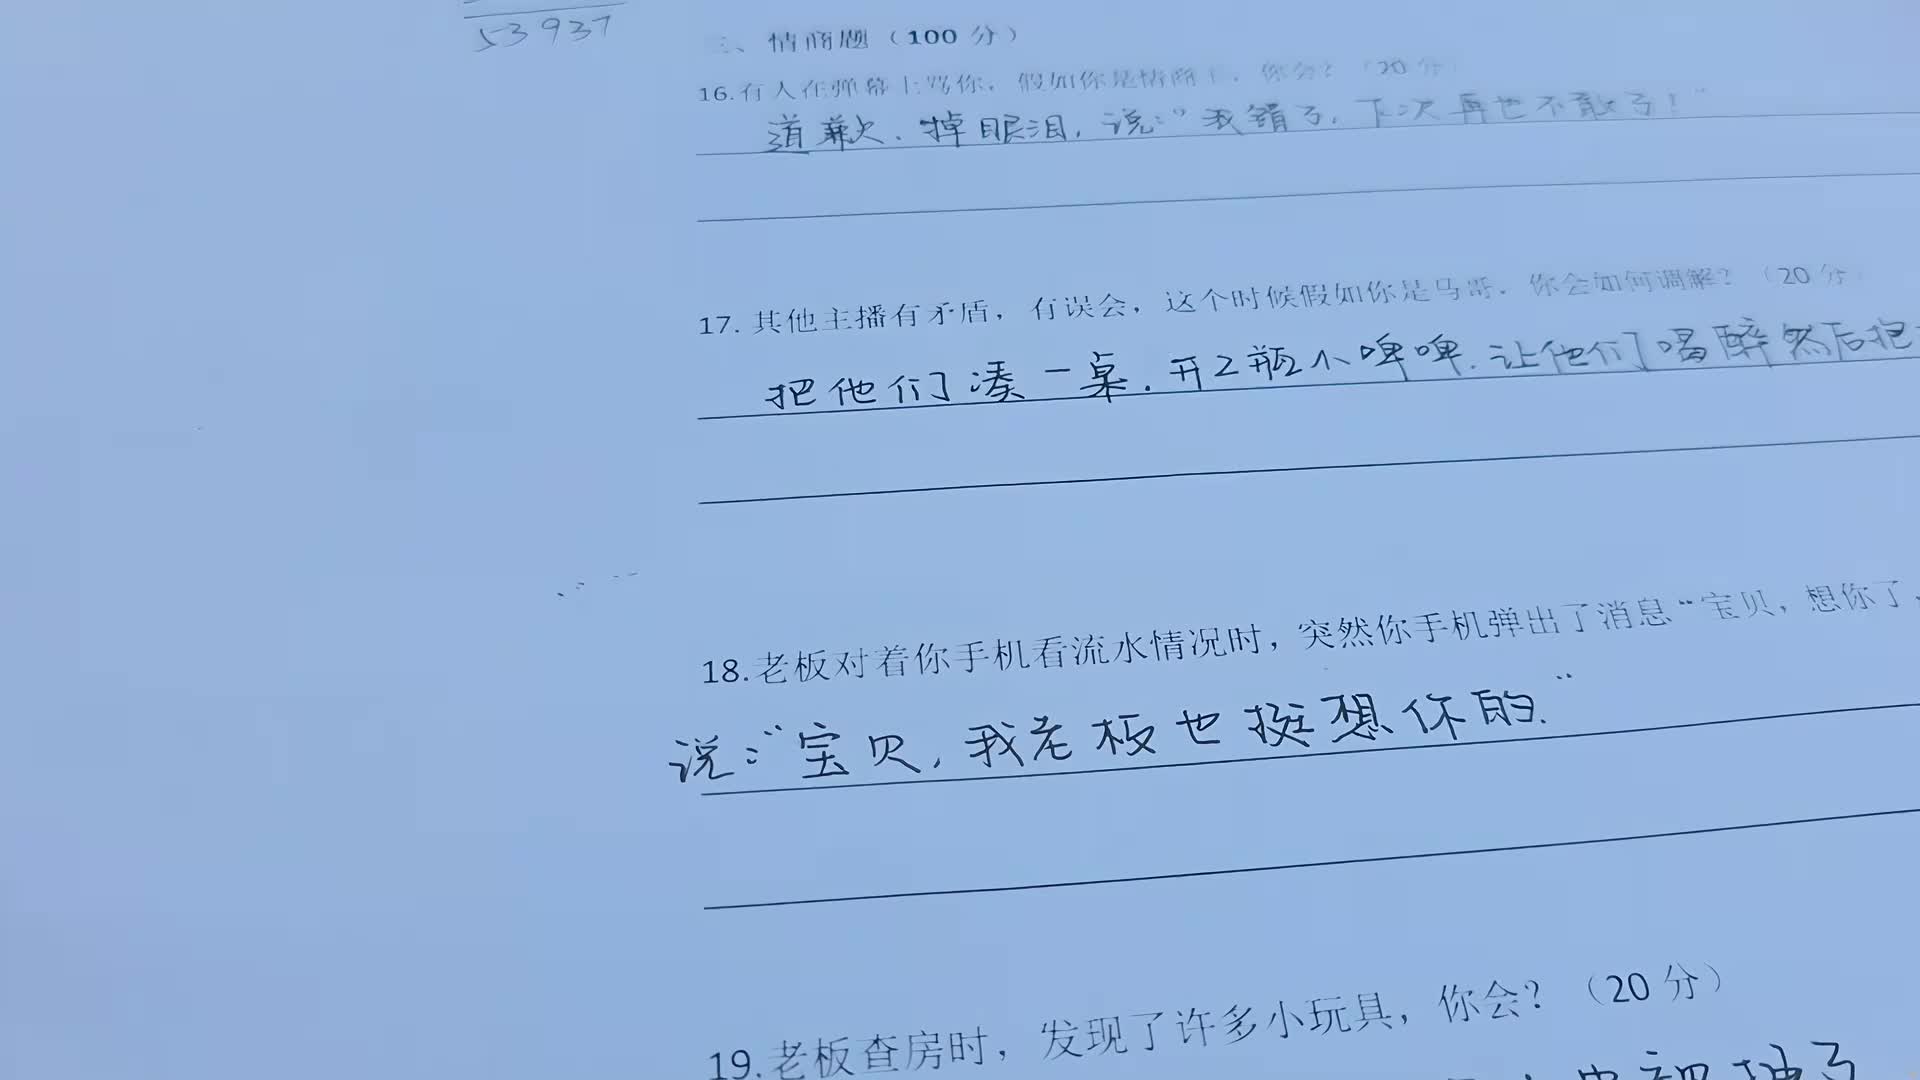 53937
三、情商题（100 分）
16.有人在弹幕上骂你，假如你是情商王，你会？（20 分）
道歉、掉眼泪，说：“我错了，下次再也不敢了！”
17. 其他主播有矛盾，有误会，这个时候假如你是马哥，你会如何调解？（20 分）
把他们凑一桌，开2瓶小啤啤，让他们喝醉然后把
18.老板对着你手机看流水情况时，突然你手机弹出了消息“宝贝，想你了，
说：“宝贝，我老板也挺想你的.”
19.老板查房时，发现了许多小玩具，你会？（20 分）